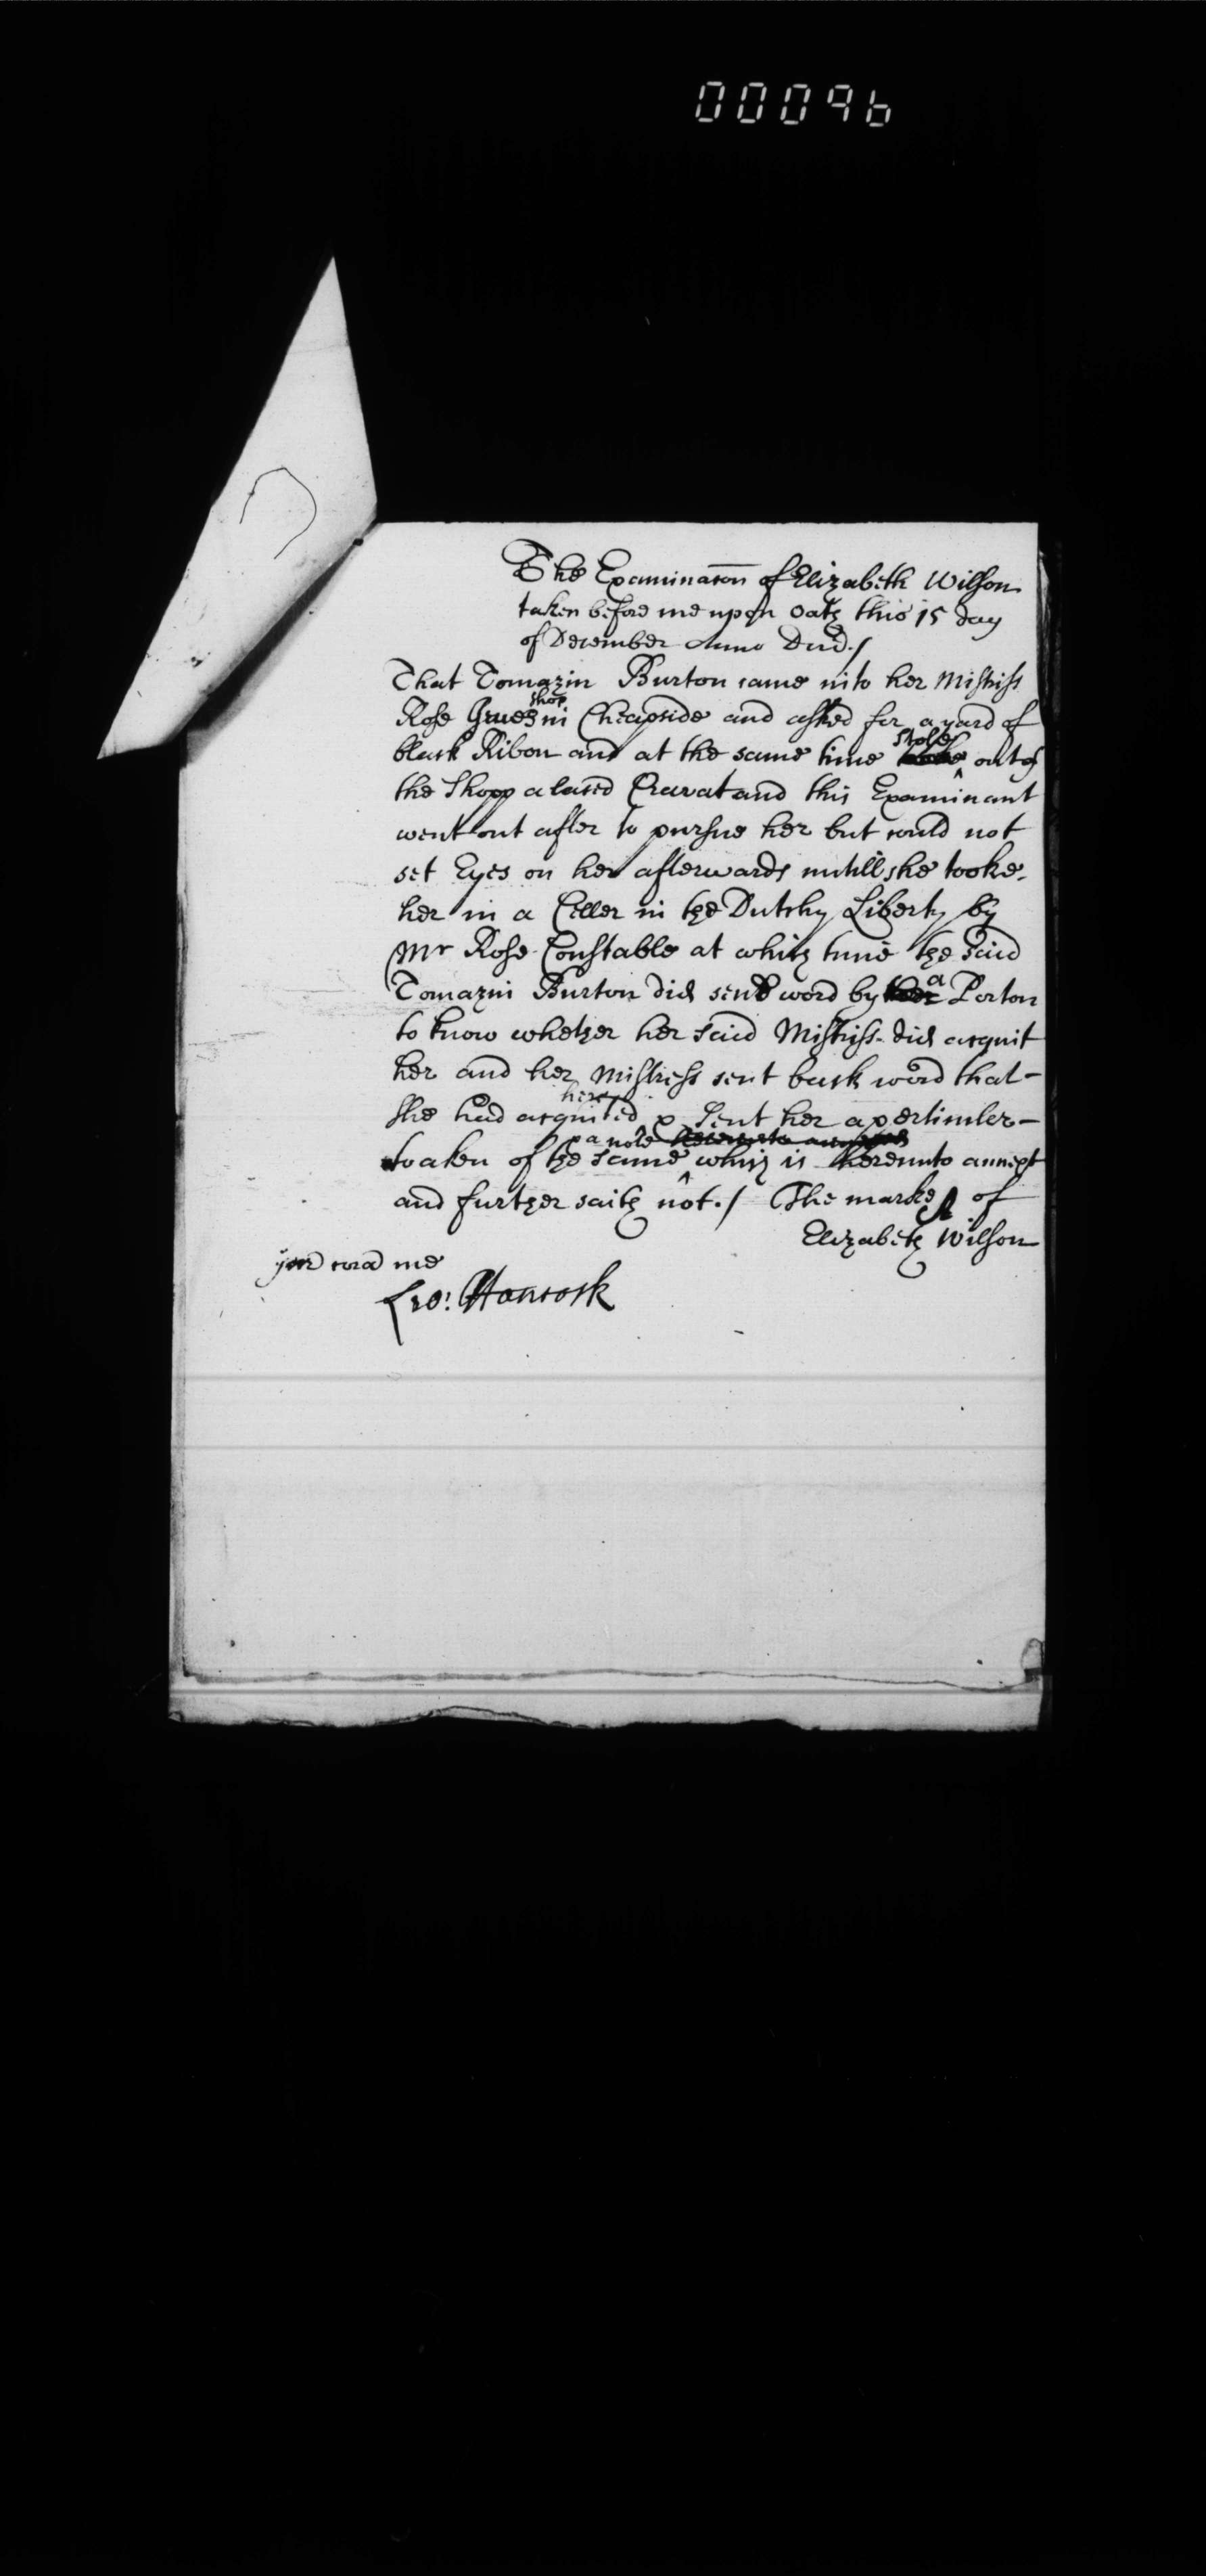 000096
The Examinacōn of Elizabeth Wilson
taken before me upon Oath this 15 day
of December Anno Dnd./
That Tomazin Burton came into her Mistriss
shop
Rose Grues in Cheapside and asked for a yard of
stole
black Ribon and at the same time out of
the Shopp a laced Cravat and this Examinant
went out after to pursue her but could not
set Eyes on her afterwards untill she tooke
her in a Celler in the Dutchy Liberty by
Mr Rose Constable at which time the said
a
Tomazin Burton did send word by Porton
to know whether her said Mistriss did acquit
her and her Mistress sent back word that
her
she had acquited & Sent her a pertinler
p a note hereunto annexed
toaken of the same which is hereunto annext
and further saith not./ The marke of
Elizabeth Wilson
jurd corad me
Geo: Hancock